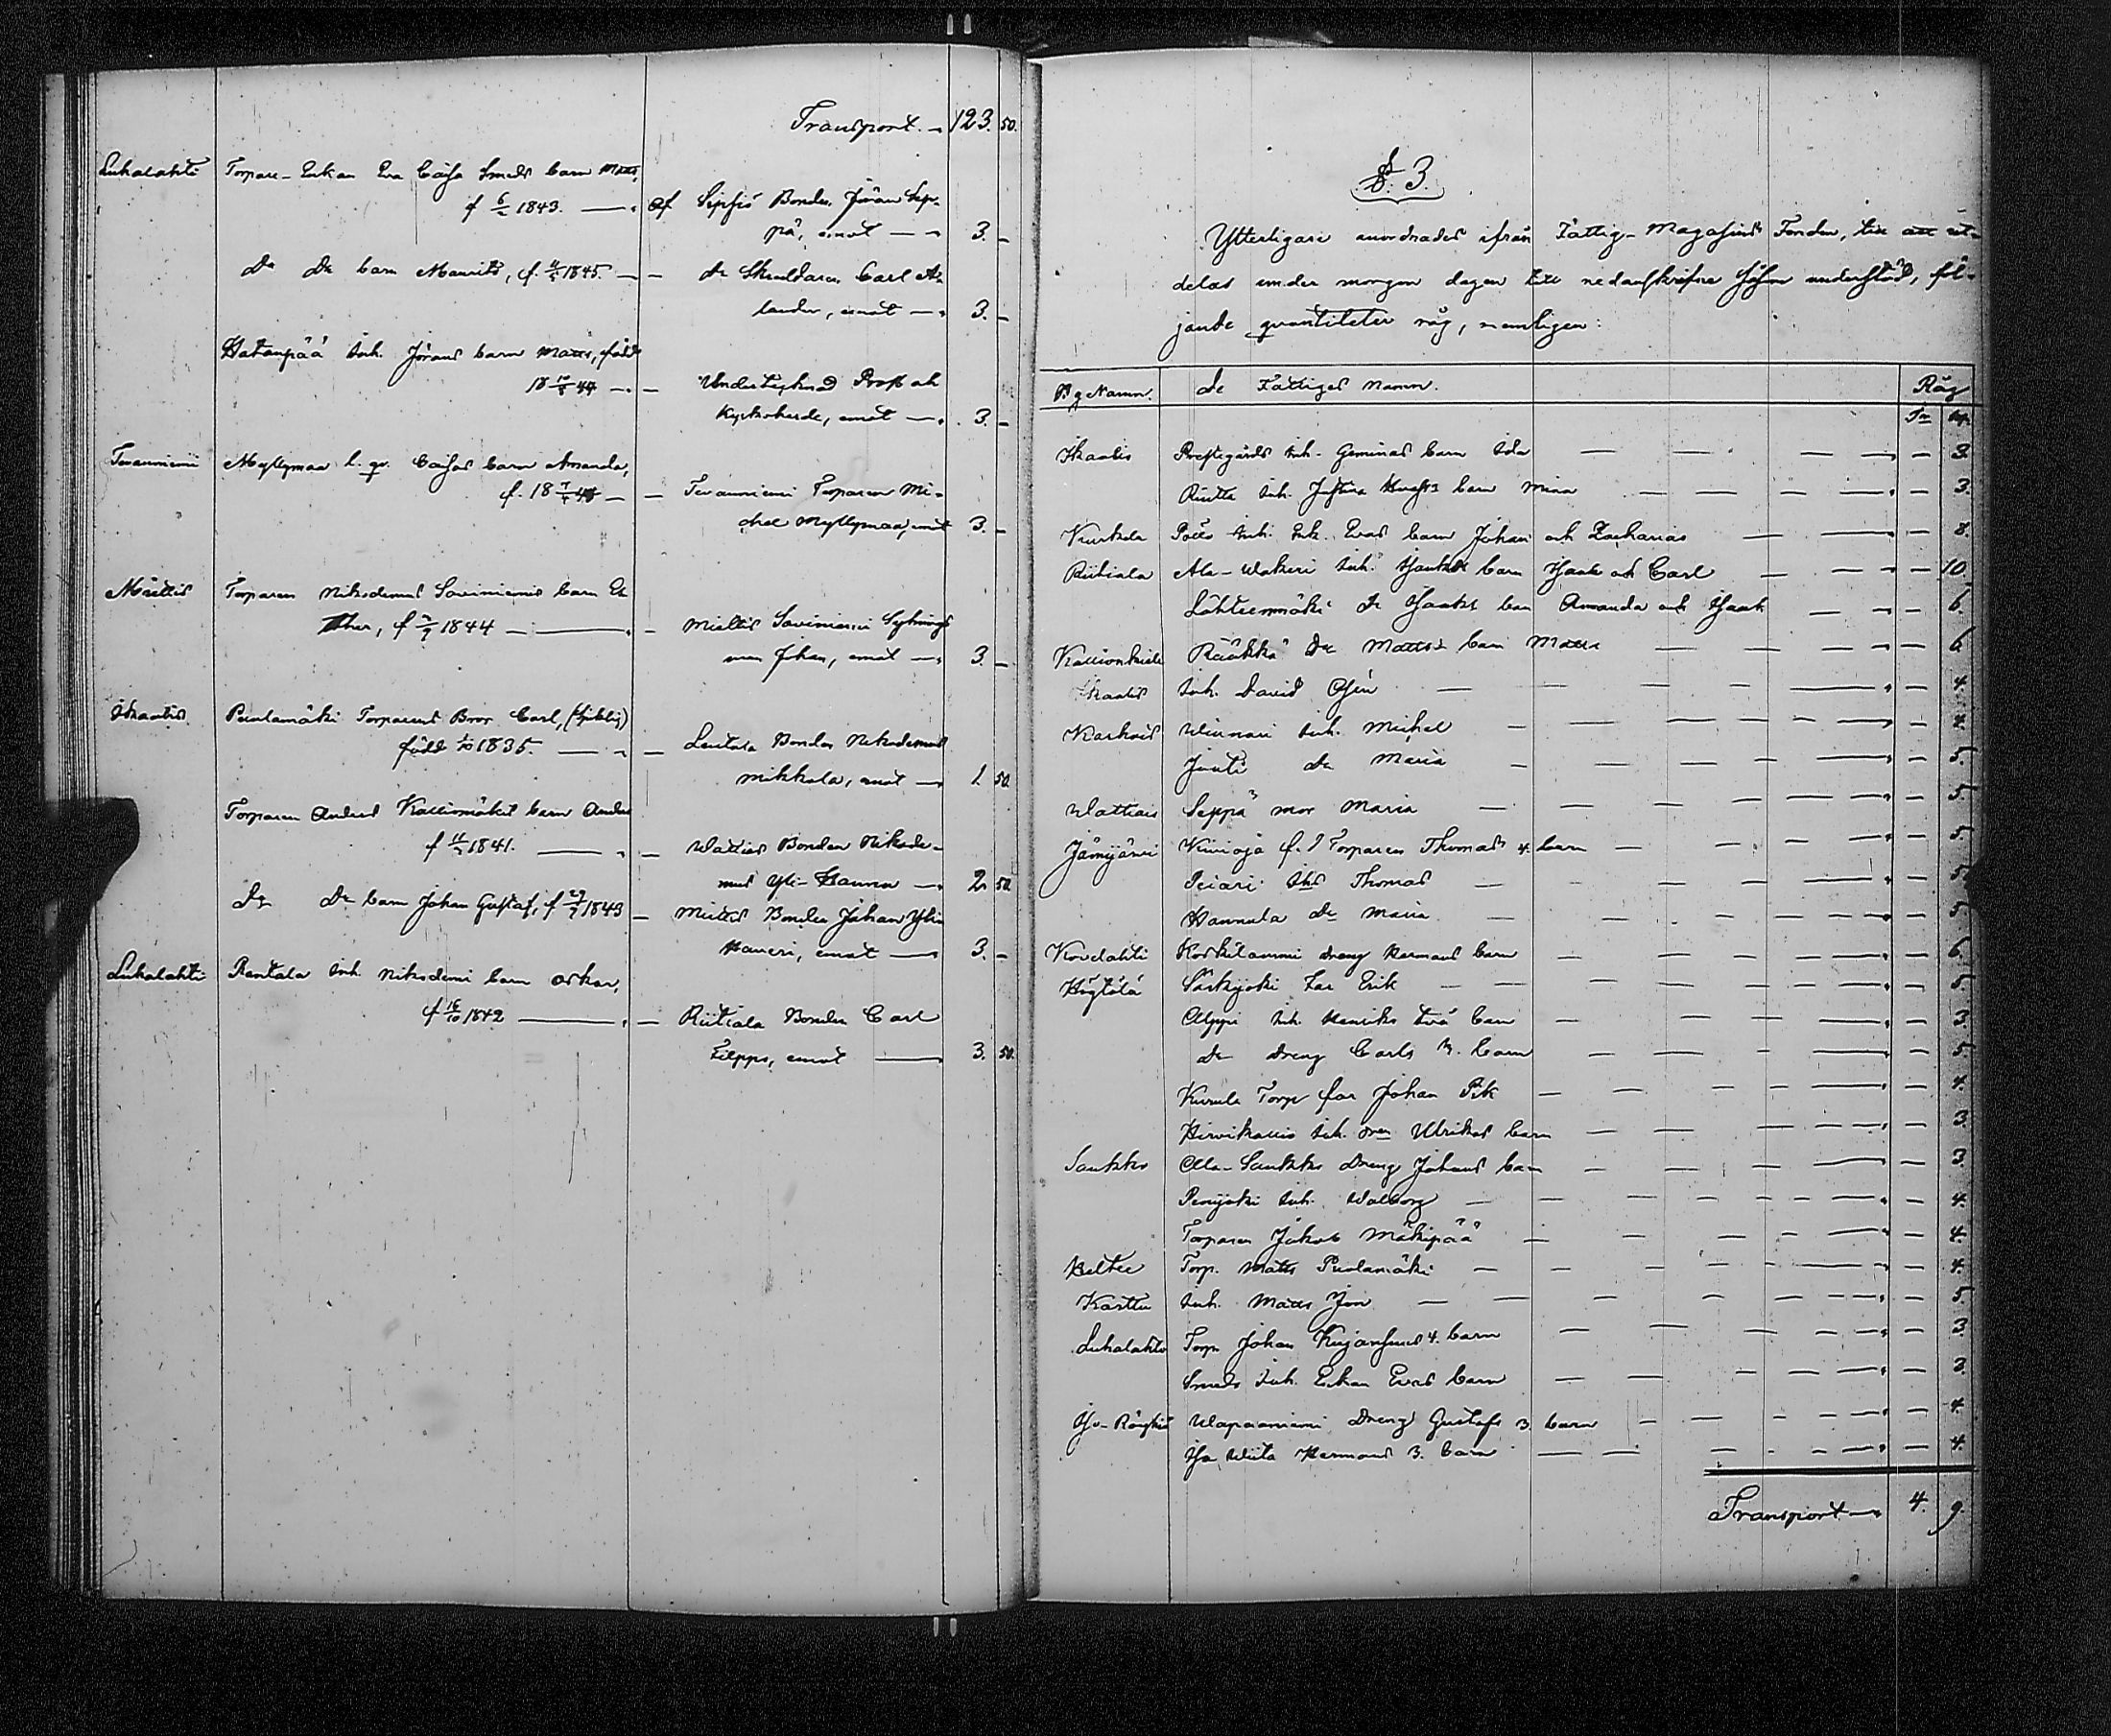 Transport. — 123. 50.
Luhalahti Torpare-Enkan Eva Cajsa Smeds barn Matts,
f 6/2 1843. — af Sipsiö Bonden Jöran Sep-
pä, emot — 3. —
Do Do barn Maurits, f. 1845. — — Do Skräddaren Carl
lander, emot — 3. —
Hatanpää Inh. Jörans barn Matts, född
18 44 — — Undertecknad Prost och
Kyrkoherde, emot — 3. —
Tevaniemi Myllymaa l. qv. Cajsas barn Amanda,
f. 18 — — Tevaniemi Torparen Mi-
chel Myllymaa, emot 3. —
Miettis Torparen Nikodemus Saviniemis barn Es
ther, f 1844 — — Miettis Saviniemi Sytnings
man Johan, emot — 3. —
Ikaalis Puolamäki Torparens Bror Carl, (sjuklig)
född 1/10 1835. — — Leutola Bonden Nikodemus
Mikkola, emot — 1. 50
Torparen Anders Kalliomäkis barn Anders
f 1841. — — Wattis Bonden Nikode-
mus Yli- — 2. 50
Do Do barn Johan Gustaf, f 1843 — Miettis Bonden Johan Yli
emot — 3. —
Luhalahti Rantala Inh. Nikodemi barn Oskar,
f 16/10 1842 — — Riitiala Bonden Carl
Filppu, emot — 3. 50.
§. 3.
Ytterligare anordnades ifrån Fattig-Magasins Fonden, till att ut-
delas under morgon dagen till nedanskrifne såsom understöd, föl-
jande quantiteter råg, nemligen:
By Namn. De Fattiges Namn. Råg
Tr kp.
Ikaalis Prestegårds Inh. Geminas barn Ida — 3.
Inh. Justina barn Mina — 3.
Kurkela Inh. Enk. Evas barn Johan och Zacharias — 8.
Riitiala Ala- Inh. barn Isaak och Carl — 10.
Lähteenmäki Do Isaaks barn Amanda och Isaak — 6.
Räökkä Do Matts barn Matts — 6
Ikaalis Inh. David — 4.
Karhois Inh. Michel — 4.
Do Maria — 5.
Wattiais Seppä mor Maria — 5.
Jämijärvi f. d Torparen Thomas 4. barn — 5.
Thomas — 5
Hannula Do Maria — 5
Kovelahti Koskilammi Dreng Hermans barn — 6.
Särkijoki Far Erik — 5
Inh. Henriks två barn — 3.
Do Dreng Carls 3. barn — 5.
Torp far Johan Pik — 4.
Hirvikallio Inh. Ulrikas barn — 3.
Saukko Ala-Saukko Dreng Johans barn — 3.
Inh. Walborg — 4.
Torparen Jakob Mäkipää — 4.
Heltee Torp. Matts Puolamäki — 4.
Karttu Inh. Matts — 5.
Luhalahti Torp Johan 4. barn — 3.
Smeds Inh. Enkan Evas barn — 3.
Iso-Röyhiö Wapaaniemi Dreng Gustafs 3. barn — 4.
Hermans 3. barn — 4.
Transport — 4. 9.